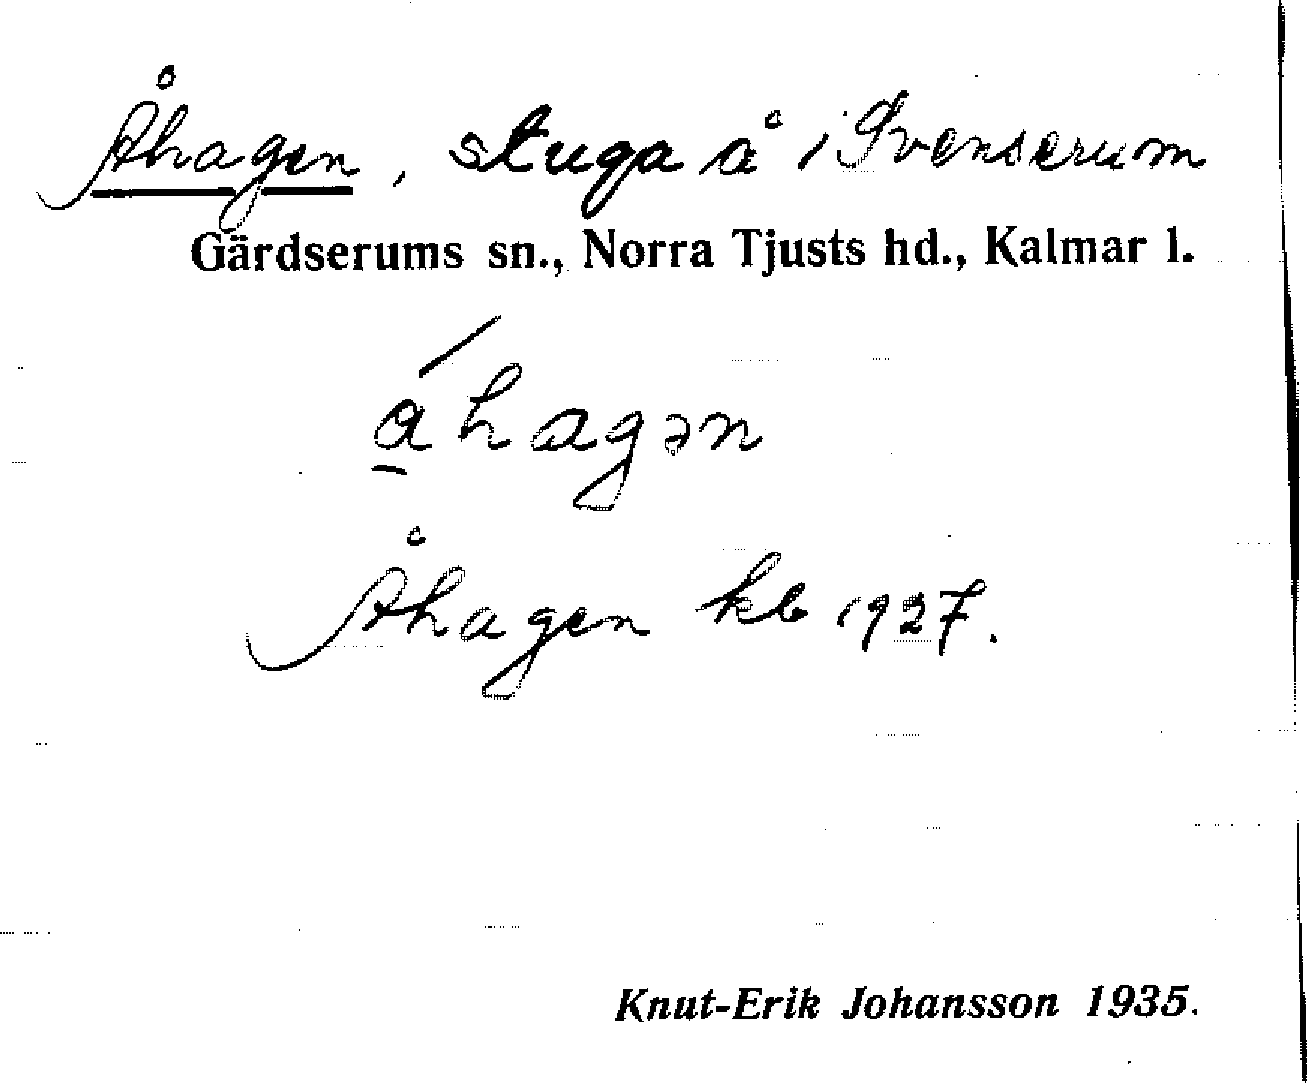 Åhagen, stuga å 1 Svenserum
Gärdserums sn., Norra Tjusts hd., Kalmar l.
a̱´hagən
Åhagen kb 1927.
Knut-Erik Johansson 1935.